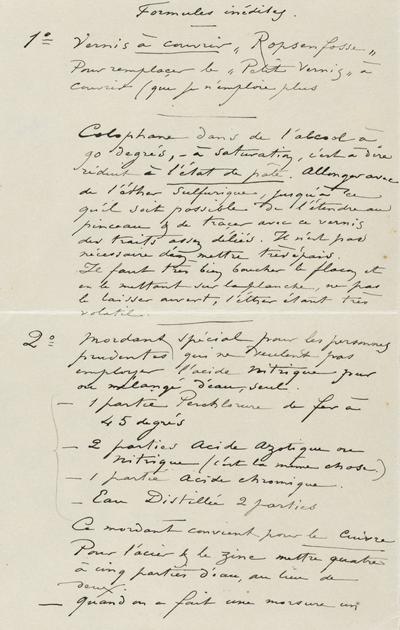 Formules inédites.
1° Vernis à couvrir „ Ropsenfosse „
Pour remplacer le „ Petit Vernis „ à
couvrir (que je n'emploie plus
Colophane dans de l'alcool à
90 degrés, - à saturation, c'est à dire
réduit à l'état de pâte. Allonger avec
de l'éther sulfurique, jusqu'à ce
qu'il soit possible de l'étendre au
pinceau & de tracer avec ce vernis
des traits assez déliés. Il n'est pas
nécessaire d'en mettre très épais.
Il faut très bien boucher le flacon, et
en le mettant sur la planche, ne pas
le laisser ouvert, l'éther étant très
volatile.
2° Mordant spécial pour les personnes
prudentes qui ne veulent pas
employer l'acide nitrique pur
ou mélangé d'eau, seul.
— 1 partie Perchlorure de fer à
45 degrés
— 2 parties Acide Azotique ou
nitrique (c'est la même chose.)
— 1 partie Acide chromique.
— Eau Distillée 2 parties
Ce mordant convient pour le cuivre
Pour l'acier & le zinc mettre quatre
à cinq parties d'eau, au lieu de
deux.
— quand on a fait une morsure un